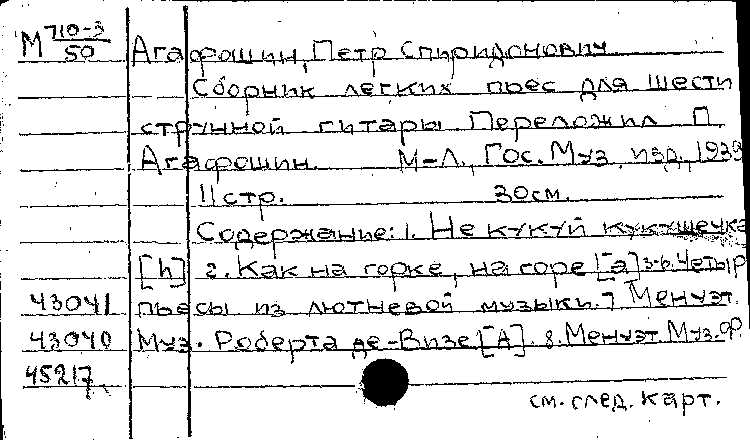 М 710-3/50 Агафошин, Петр Спиридонович
Сборник легких пьес для шести
струнной гитары Переложил П.
Агафошин. М-Л., Гос. Муз. изд., 1939
11 стр. 30 см.
Содержание: 1. Не кукуй кукушечка
[h] 2. Как на горке, на горе [a] 3-6. Четыр
43041 пьесы из лютневой музыки. 7 Менуэт.
43040 Муз. Роберта де-Визе [A]. 8. Менуэт. Муз. Ф.
45217
см. след. карт.